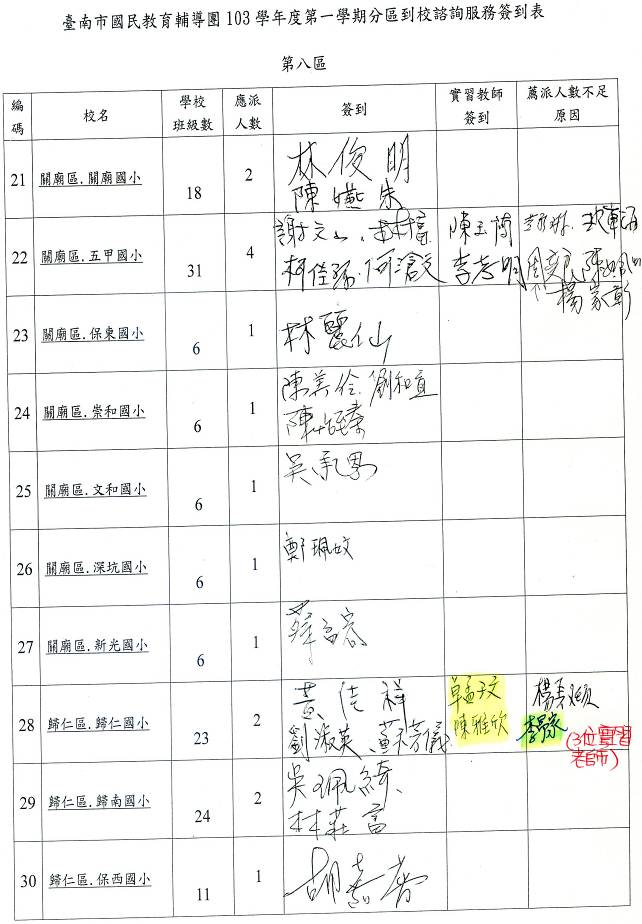 臺南市國民教育輔導團 103 學年度第一學期分區到校諮詢服務簽到表
第八區
編碼 校名 學校班級數 應派人數 簽到 實習教師簽到 薦派人數不足原因
21 關廟區.關廟國小 18 2 林俊明
陳嬿朱
22 關廟區.五甲國小 31 4 謝文山、 陳玉
柯佳 何滄文 李孝明
楊家彰
23 關廟區.保東國小 6 1 林麗仙
24 關廟區.崇和國小 6 1 陳美伶 劉和宜
陳
25 關廟區.文和國小 6 1 吳承恩
26 關廟區.深坑國小 6 1 鄭珮妏
27 關廟區.新光國小 6 1
28 歸仁區.歸仁國小 23 2 黃佳祥 楊
劉淑英、蘇芳儀 陳雅欣
(3位實習老師)
29 歸仁區.歸南國小 24 2 吳珮綺、
林莊富
30 歸仁區.保西國小 11 1 胡